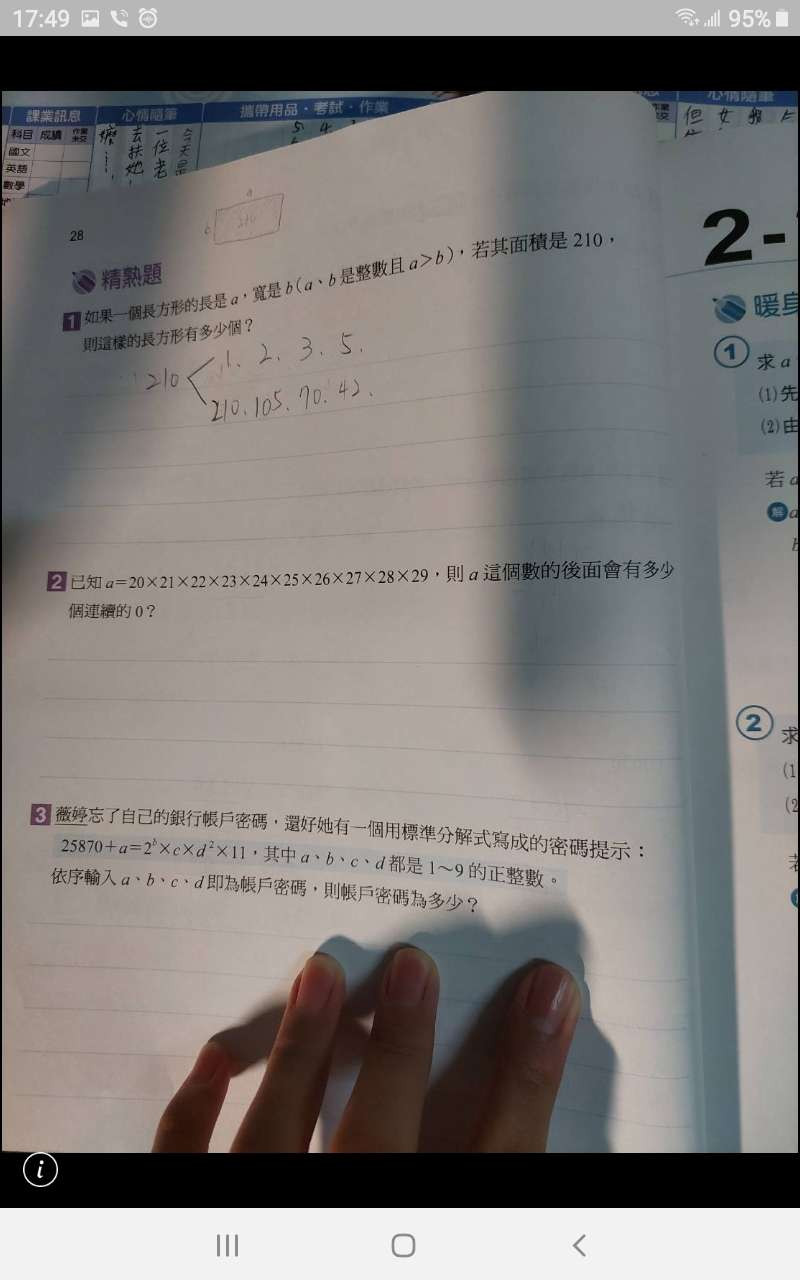 17:49 95%
課業訊息 心情隨筆 攜帶用品·考試·作業 心情隨筆
科目 成績 作業未交
國文
英語
數學
今天是
一位老
去扶她
但 女
a
b 210
28
精熟題
1 如果一個長方形的長是 a，寬是 b(a、b 是整數且 a>b)，若其面積是 210，
則這樣的長方形有多少個？
210 1、2、3、5、
210、105、70、42、
2 已知 a=20×21×22×23×24×25×26×27×28×29，則 a 這個數的後面會有多少
個連續的 0？
3 薇婷忘了自己的銀行帳戶密碼，還好她有一個用標準分解式寫成的密碼提示：
25870+a=2ᵇ×c×d²×11，其中 a、b、c、d 都是 1～9 的正整數。
依序輸入 a、b、c、d 即為帳戶密碼，則帳戶密碼為多少？
2-
暖身
1 求 a
(1)先
(2)由
若 a
解 a
b
2 求
(1
(2